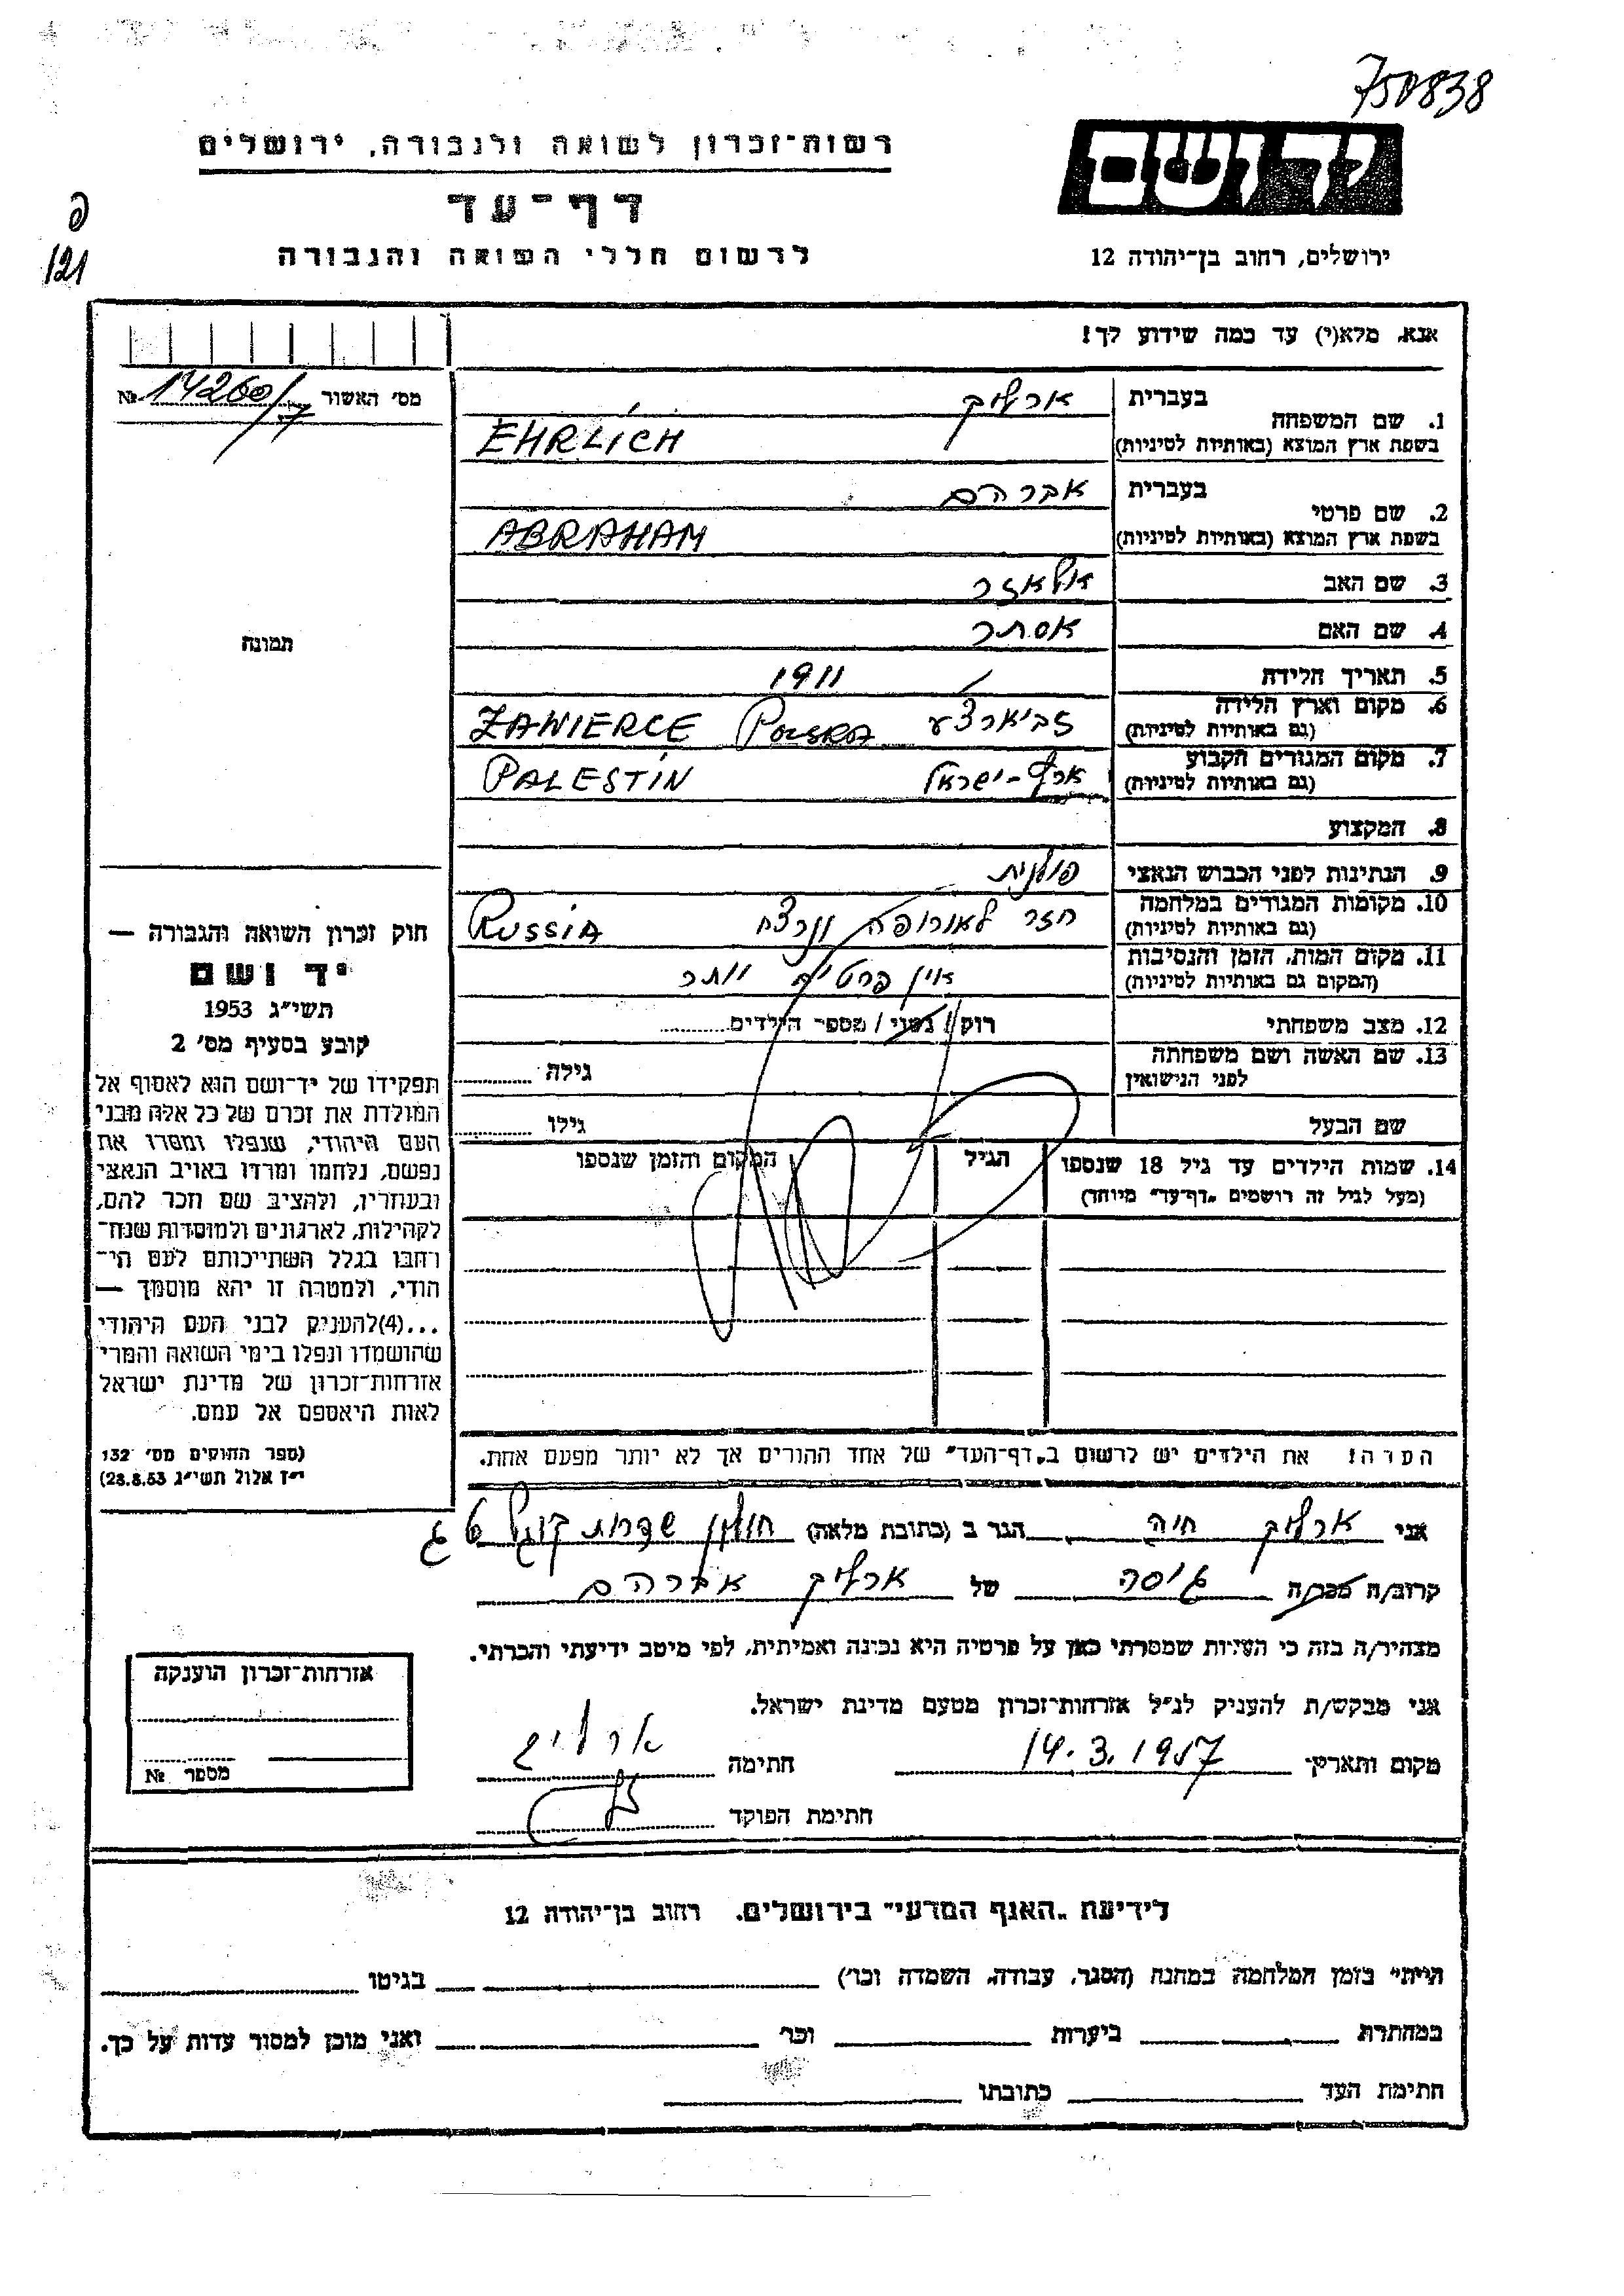 750838
יד ושם
ירושלים, רחוב בן־יהודה 12
רשות־זכרון לשואה ולגבורה, ירושלים
דף־עד
לרשום חללי השואה והגבורה
פ
121
אנא, מלא(י) עד כמה שידוע לך!
מס׳ האשור № 14260/7
1. שם המשפחה בעברית ארליך
בשפת ארץ המוצא (באותיות לטיניות) EHRLICH
2. שם פרטי בעברית אברהם
בשפת ארץ המוצא (באותיות לטיניות) ABRAHAM
3. שם האב אלאזר
4. שם האם אסתר
5. תאריך הלידה 1911
6. מקום וארץ הלידה (גם באותיות לטיניות) זביארצע POLSKA ZAWIERCE
7. מקום המגורים הקבוע (גם באותיות לטיניות) ארץ-ישראל PALESTIN
8. המקצוע
9. הנתינות לפני הכבוש הנאצי פולנית
10. מקומות המגורים במלחמה (גם באותיות לטיניות) חזר לאורופה ונרצח RUSSIA
11. מקום המות, הזמן והנסיבות (המקום גם באותיות לטיניות) אין פרטים יותר
12. מצב משפחתי רוק / נשוי / מספר הילדים
13. שם האשה ושם משפחתה לפני הנישואין גילה
שם הבעל גילו
14. שמות הילדים עד גיל 18 שנספו (מעל לגיל זה רושמים „דף־עד” מיוחד) הגיל המקום והזמן שנספו
הערה! את הילדים יש לרשום ב„דף־העד” של אחד ההורים אך לא יותר מפעם אחת.
תמונה
חוק זכרון השואה והגבורה —
יד ושם
תשי״ג 1953
קובע בסעיף מס׳ 2
תפקידו של יד־ושם הוא לאסוף אל
המולדת את זכרם של כל אלה מבני
העם היהודי, שנפלו ומסרו את
נפשם, נלחמו ומרדו באויב הנאצי
ובעוזריו, ולהציב שם וזכר להם,
לקהילות, לארגונים ולמוסדות שנח־
רבו בגלל השתייכותם לעם הי־
הודי, ולמטרה זו יהא מוסמך —
...(4)להעניק לבני העם היהודי
שהושמדו ונפלו בימי השואה והמרי
אזרחות־זכרון של מדינת ישראל
לאות היאספם אל עמם.
(ספר החוקים מס׳ 132
י״ז אלול תשי״ג 28.8.53)
אני ארליך חיה הגר ב (כתובת מלאה) חולון שדרות קוגל
קרוב/ה מכר/ה גיסה של ארליך אברהם
מצהיר/ה בזה כי העדות שמסרתי כאן על פרטיה היא נכונה ואמיתית, לפי מיטב ידיעתי והכרתי.
אני מבקש/ת להעניק לנ״ל אזרחות־זכרון מטעם מדינת ישראל.
מקום ותאריך 14.3.1957 חתימה ארליך
חתימת הפוקד
אזרחות־זכרון הוענקה
מספר №
לידיעת „האגף המדעי” בירושלים. רחוב בן־יהודה 12
הייתי בזמן המלחמה במחנה (הסגר, עבודה, השמדה וכו׳) בגיטו
במחתרת ביערות וכו׳ ואני מוכן למסור עדות על כך.
חתימת העד כתובתו